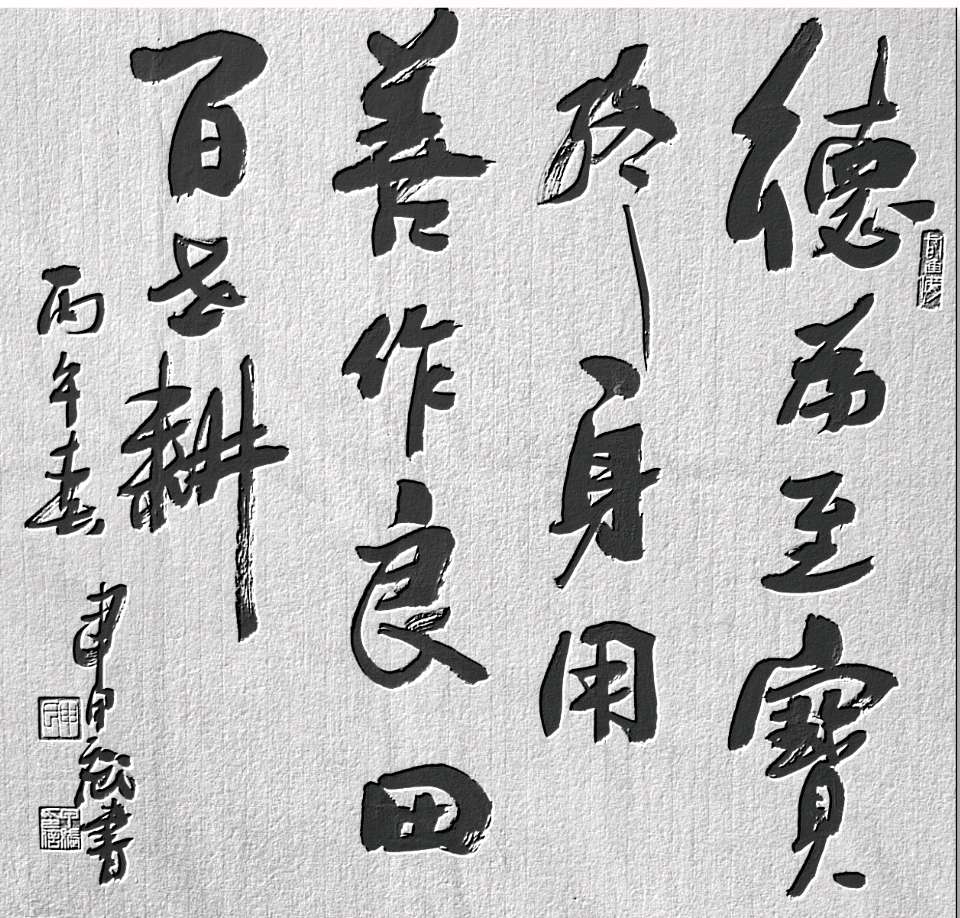 德為至寶
終身用
善作良田
百世耕
丙午春
書